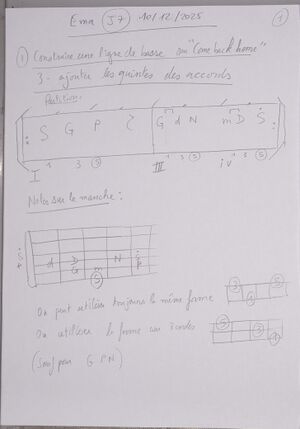 Ema J7 10/12/2025 1
1 Construire une ligne de basse sur "Come back home"
3 - ajouter les quintes des accords
Partition:
S G P G d N m D S
I 1 3 5 III 1 3 5 IV 1 3 5
Notes sur le manche:
d D G N P
On peut utiliser toujours la même forme
Ou utiliser la forme sur 3 cordes
(Sauf pour G P N)